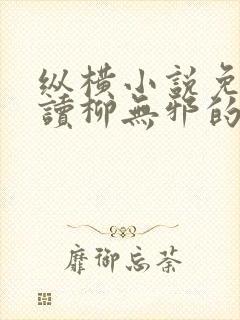 纵横小说免
讀柳無邪的
靡御忘荼